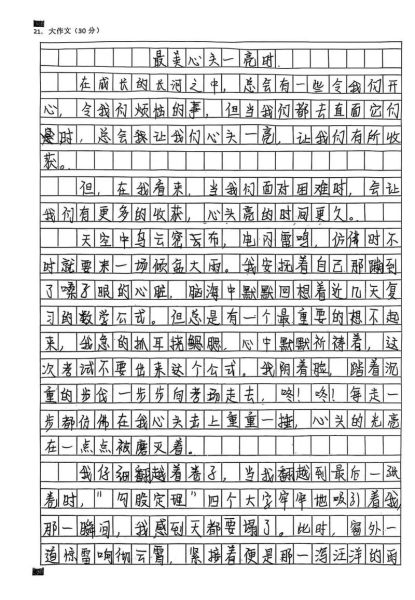 21. 大作文(30分)
最美心头一亮时
在成长的长河之中,总会有一些令我们开
心,令我们烦恼的事,但当我们都去直面它们
时,总会让我们心头一亮,让我们有所收
获。
但,在我看来,当我们面对困难时,会让
我们有更多的收获,心头亮的时间更久。
天空中乌云密云布,电闪雷鸣,仿佛时不
时就要来一场倾盆大雨。我安抚着自己那蹦到
了嗓子眼的心脏,脑海中默默回想着近几天复
习的数学公式。但总是有一个最重要的想不起
来,我急的抓耳挠腮,心中默默祈祷着,这
次考试不要出来这个公式。我阴着脸,踏着沉
重的步伐一步步向考场走去,咚!咚!每走一
步都仿佛在我心头击上重重一捶,心头的光亮
在一点点被磨灭着。
我仔细翻越着卷子,当我翻越到最后一张
卷时,"勾股定理"四个大字牢牢地吸引着我
那一瞬间,我感到天都要塌了。此时,窗外一
道惊雷响彻云霄,紧接着便是那一泻汪洋的雨